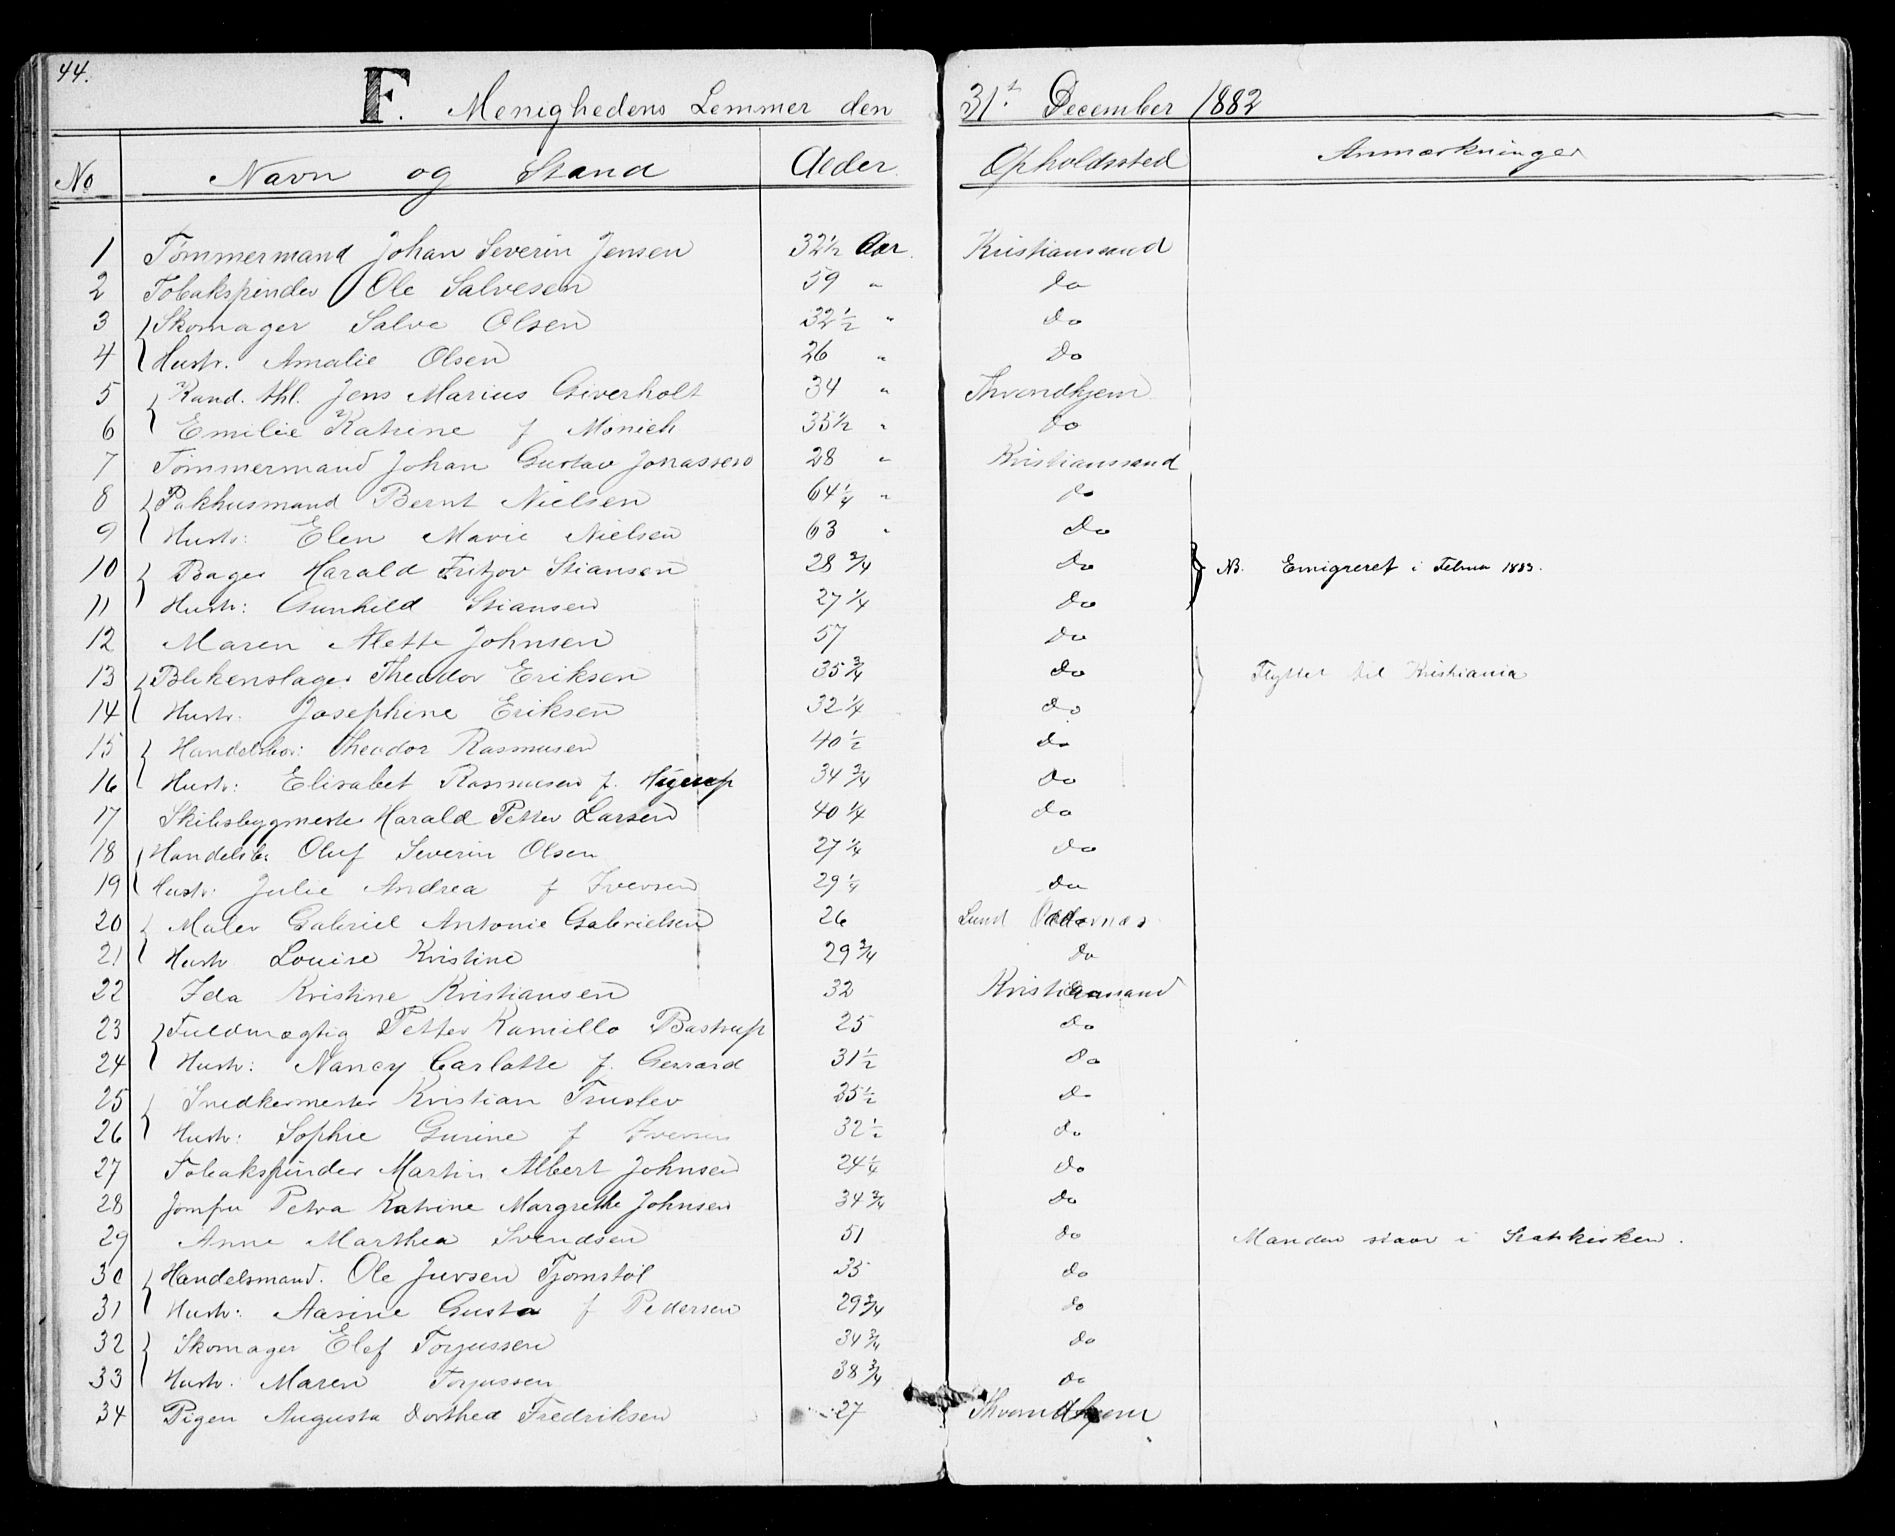 44.
F. Menighedens Lemmer den 31.t December 1882
No Navn og Stand Alder Opholdssted Anmærkninger
1 Tømmermand Johan Severin Jensen 32½ Aar. Kristianssand
2 Tobakspinder Ole Salvesen 59 " do
3 Skomager Salve Olsen 32½ " do
4 Hustr. Amalie Olsen 26 " do
5 Kand. thl. Jens Marius Giverholt 34 " Throndhjem
6 Emilie Katrine f Monich 35½ " do
7 Tømmermand Johan Gustav Jonassen 28 " Kristianssand
8 Pakhusmand Bernt Nielsen 64¼ " do
9 Hustr: Elen Marie Nielsen 63 " do
10 Bager Harald Fritjov Stiansen 28 3/4 do NB. Emigreret i Februa 1883.
11 Hustr: Gunhild Stiansen 27 1/4 do
12 Maren Alette Johnsen 57 do
13 Blikenslager Theodor Eriksen 35 3/4 do Flyttet til Kristiania
14 Hustr: Josephine Eriksen 32 1/4 do
15 Handelsbor: Theodor Rasmusen 40 ½ do
16 Hustr: Elisabet Rasmusen f. 34 3/4 do
17 Skibsbygmester Harald Petter Larsen 40 1/4 do
18 Handelsb. Oluf Severin Olsen 27 1/4 do
19 Hustr: Julie Andrea f Iversen 29 1/4 do
20 Maler Gabriel Antonie Gabrielsen 26 Lund Oddernæs
21 Hustr Louise Kristine 29 3/4 do
22 Ida Kristine Kristiansen 32 Kristianssand
23 Fuldmægtig Petter Kamillo Bastrup 25 do
24 Hustr: Nancy Carlotte f. Gerrard 31½ do
25 Snedkermester Kristian Truslev 35½ do
26 Hustr: Sophie Gurine f Iversen 32½ do
27 Tobakspinder Martin Albert Johnsen 24¼ do
28 Jomfru Petra Katrine Margrethe Johnsen 34 3/4 do
29 Anne Marthea Svendsen 51 do Manden staar i Statskirken.
30 Handelsmand. Ole Juvsen Tjomstøl 35 do
31 Hustr: Aasine Gusta f Pedersen 29 3/4 do
32 Skomager Elef Torjussen 34 3/4 do
33 Hustr: Maren Torjussen 38 3/4 do
34 Pigen Augusta Dorthea Fredriksen 27 Throndhjem